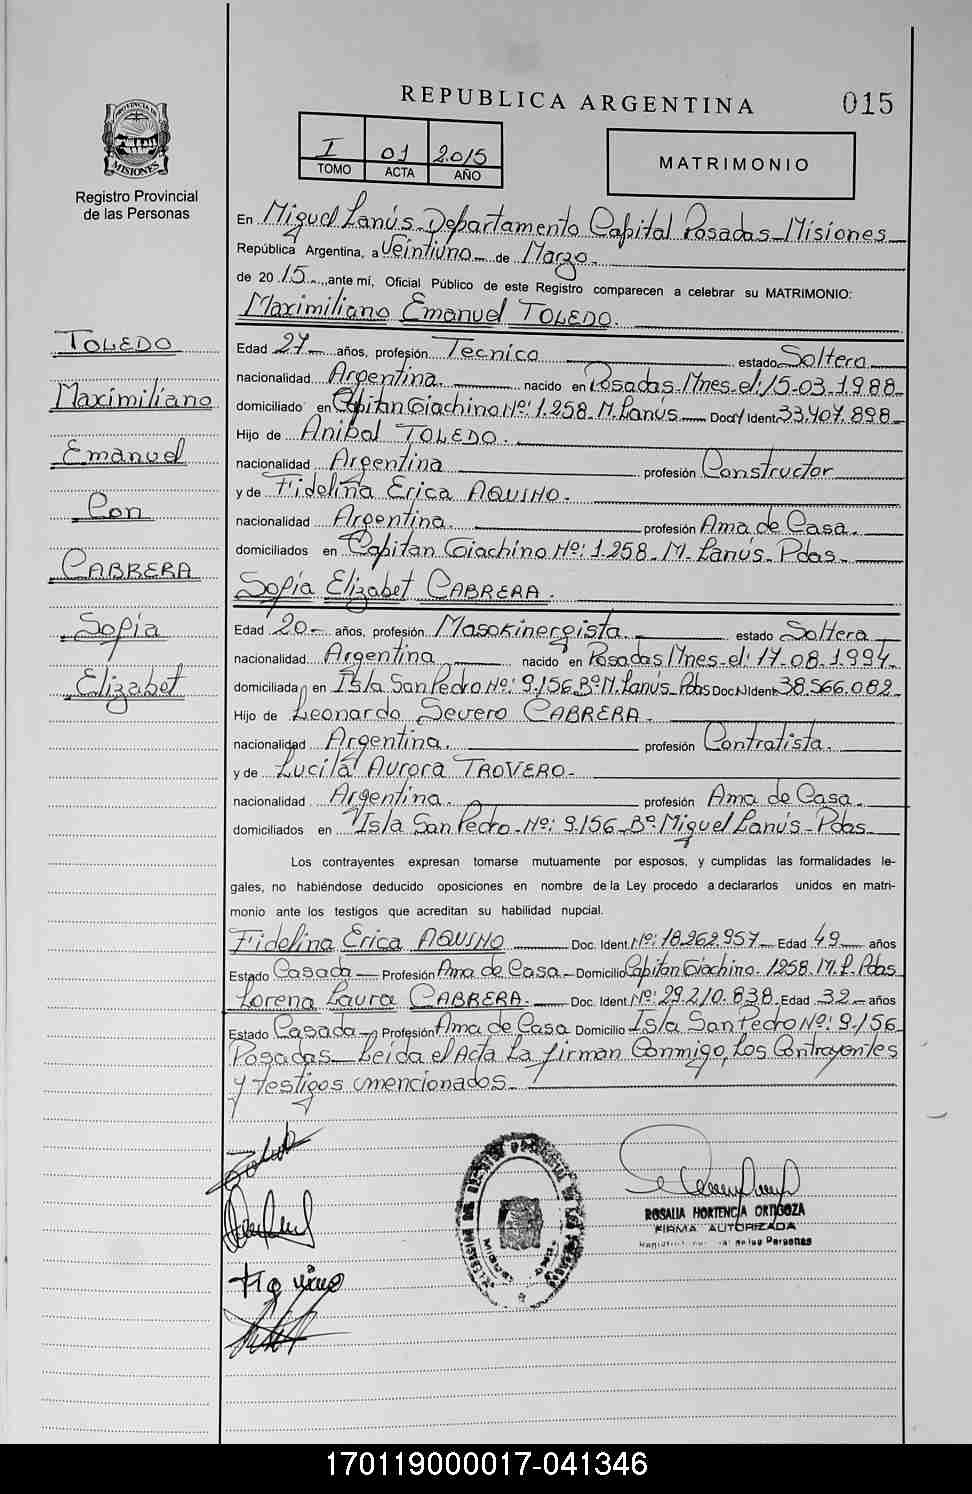 REPUBLICA ARGENTINA
015
PROVINCIA DE
MISIONES
Registro Provincial
de las Personas
I 01 2.015
TOMO ACTA AÑO
MATRIMONIO
En Miguel Lanús Departamento Capital Posadas Misiones
República Argentina, a Veintiuno de Marzo.
de 20 15 ante mí, Oficial Público de este Registro comparecen a celebrar su MATRIMONIO:
Maximiliano Emanuel TOLEDO.
TOLEDO
Maximiliano
Emanuel
Con
CABRERA
Sofía
Elizabet
Edad 27 años, profesión Tecnico estado Soltero
nacionalidad Argentina. nacido en Posadas Mnes. el: 15-03.1.988
domiciliado en Capitan Giachino Nº: 1.258. M. Lanús Doc. Ident. 33.407.898
Hijo de Anibal TOLEDO.
nacionalidad Argentina profesión Constructor
y de Fidelina Erica AQUINO.
nacionalidad Argentina. profesión Ama de Casa.
domiciliados en Capitan Giachino Nº: 1.258 M. Lanús - Pdas
Sofía Elizabet CABRERA.
Edad 20 años, profesión Masokinergista. estado Soltera
nacionalidad Argentina nacido en Posadas Mnes. el: 17-08.1.994
domiciliada en Isla San Pedro Nº: 9.156 Bº M. Lanús Pdas Doc. Ident. 38.566.082
Hijo de Leonardo Severo CABRERA.
nacionalidad Argentina. profesión Contratista.
y de Lucila Aurora TROVERO.
nacionalidad Argentina. profesión Ama de Casa.
domiciliados en Isla San Pedro - Nº: 9.156 Bº Miguel Lanús - Pdas
Los contrayentes expresan tomarse mutuamente por esposos, y cumplidas las formalidades le-
gales, no habiéndose deducido oposiciones en nombre de la Ley procedo a declararlos unidos en matri-
monio ante los testigos que acreditan su habilidad nupcial.
Fidelina Erica AQUINO Doc. Ident. Nº: 18.262.957 Edad 49 años
Estado Casada Profesión Ama de Casa Domicilio Capitan Giachino. 1258. M. L. Pdas
Lorena Laura CABRERA. Doc. Ident. Nº: 29.210.838 Edad 32 años
Estado Casada Profesión Ama de Casa Domicilio Isla San Pedro Nº: 9.156
Posadas Leída el Acta La firman Conmigo, Los Contrayentes
y testigos mencionados.
ROSALIA HORTENCIA ORTIGOZA
FIRMA AUTORIZADA
de las Personas
170119000017-041346